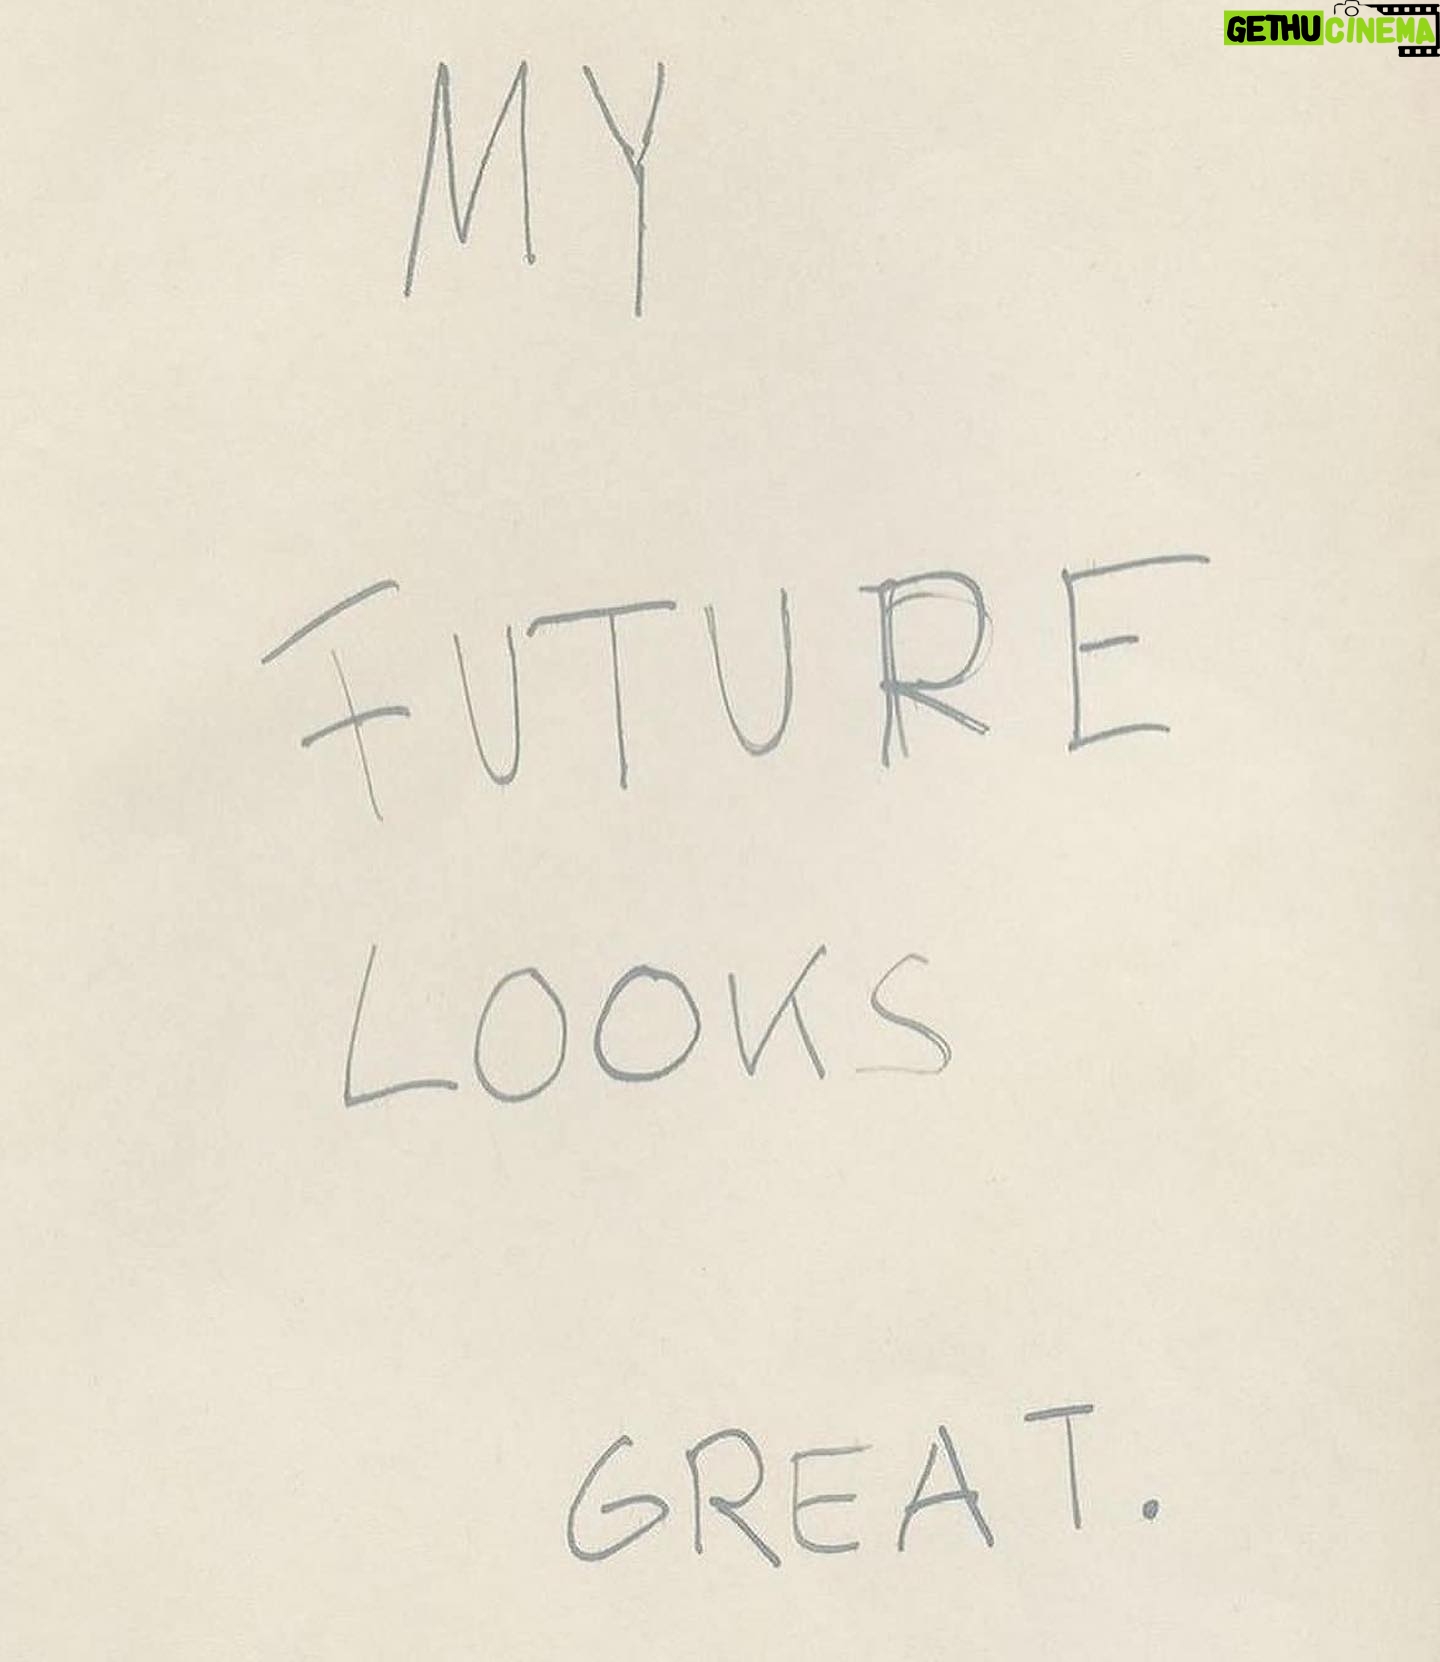 GETHUCINEMA
MY
FUTURE
LOOKS
GREAT.